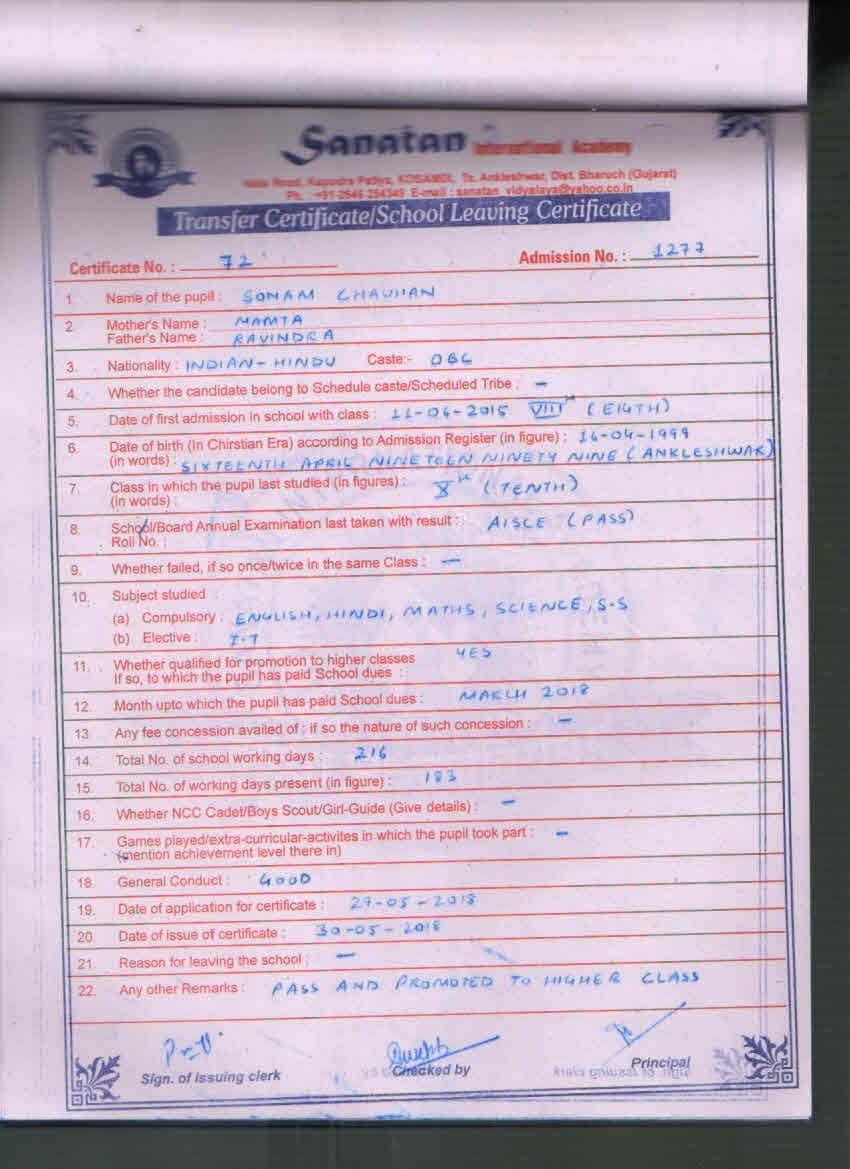 Sanatan International Academy
Road, Kapodra Patiya, KOSAMDI, Ta. Ankleshwar, Dist. Bharuch (Gujarat)
Ph. : +91-2646 254349 E-mail : sanatan_vidyalaya@yahoo.co.in
Transfer Certificate/School Leaving Certificate
Certificate No. : 72 Admission No. : 1277
1. Name of the pupil : SONAM CHAUHAN
2. Mother's Name : MAMTA
Father's Name : RAVINDRA
3. Nationality : INDIAN-HINDU Caste:- OBC
4. Whether the candidate belong to Schedule caste/Scheduled Tribe : -
5. Date of first admission in school with class : 11-06-2015 VIII (EIGTH)
6. Date of birth (In Chirstian Era) according to Admission Register (in figure) : 16-04-1999
(in words) : SIXTEENTH APRIL NINETEEN NINETY NINE (ANKLESHWAR)
7. Class in which the pupil last studied (in figures) : X (TENTH)
(in words) :
8. School/Board Annual Examination last taken with result : AISCE (PASS)
Roll No. :
9. Whether failed, if so once/twice in the same Class : -
10. Subject studied :
(a) Compulsory : ENGLISH, HINDI, MATHS, SCIENCE, S.S
(b) Elective : I-T
11. Whether qualified for promotion to higher classes YES
If so, to which the pupil has paid School dues :
12. Month upto which the pupil has paid School dues : MARCH 2018
13. Any fee concession availed of ; if so the nature of such concession : -
14. Total No. of school working days : 216
15. Total No. of working days present (in figure) : 183
16. Whether NCC Cadet/Boys Scout/Girl-Guide (Give details) : -
17. Games played/extra-curricular-activites in which the pupil took part : -
(mention achievement level there in)
18. General Conduct : GOOD
19. Date of application for certificate : 27-05-2018
20. Date of issue of certificate : 30-05-2018
21. Reason for leaving the school : -
22. Any other Remarks : PASS AND PROMOTED TO HIGHER CLASS
Sign. of issuing clerk Checked by Principal